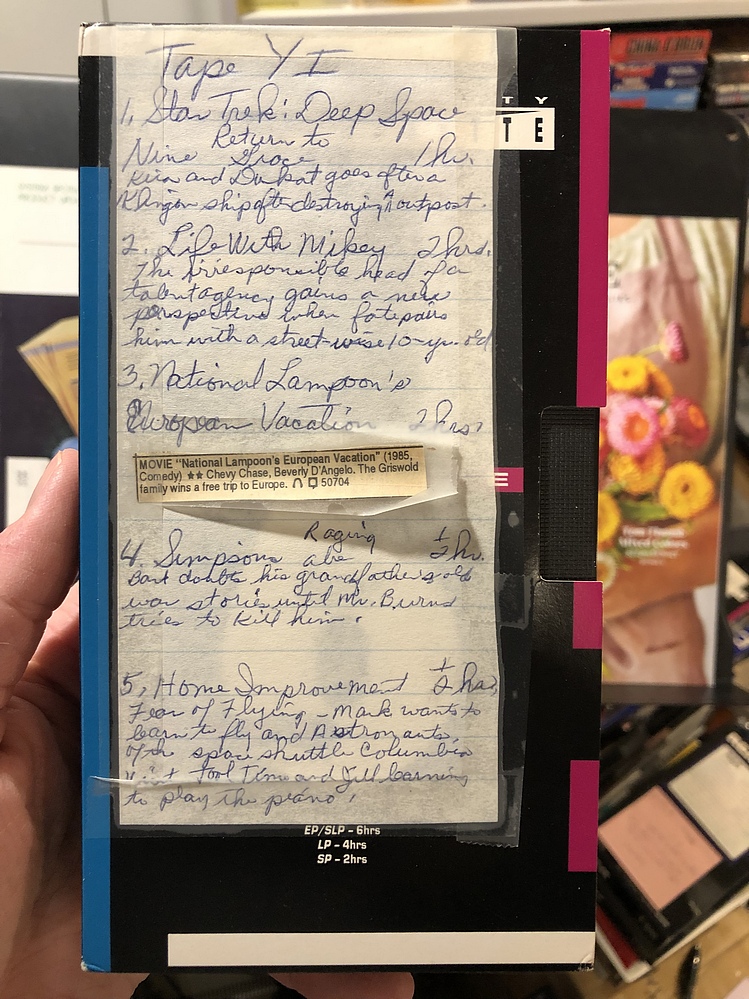 Tape YI
1, Star Trek: Deep Space
Return to
Nine Grace 1 hr.
Kira and Dukat goes after a
Klingon ship after destroying A outpost.
2. Life With Mikey 2 hrs.
The irresponsible head of a
talent agency gains a new
perspective when fate pairs
him with a street-wise 10-yr. old
3. National Lampoon's
European Vacation 2 hrs.
MOVIE "National Lampoon's European Vacation" (1985,
Comedy) ★★ Chevy Chase, Beverly D'Angelo. The Griswold
family wins a free trip to Europe. 50704
Raging
4. Simpsons abe ½ hr.
Bart doubts his grandfather's old
war stories until Mr. Burns
tries to kill him.
5, Home Improvement ½ hr.
Fear of Flying - Mark wants to
learn to fly and Astronauts,
of the space shuttle Columbia
visit Tool Time and Jill learning
to play the piano.
EP/SLP - 6hrs
LP - 4hrs
SP - 2hrs
T Y
T E